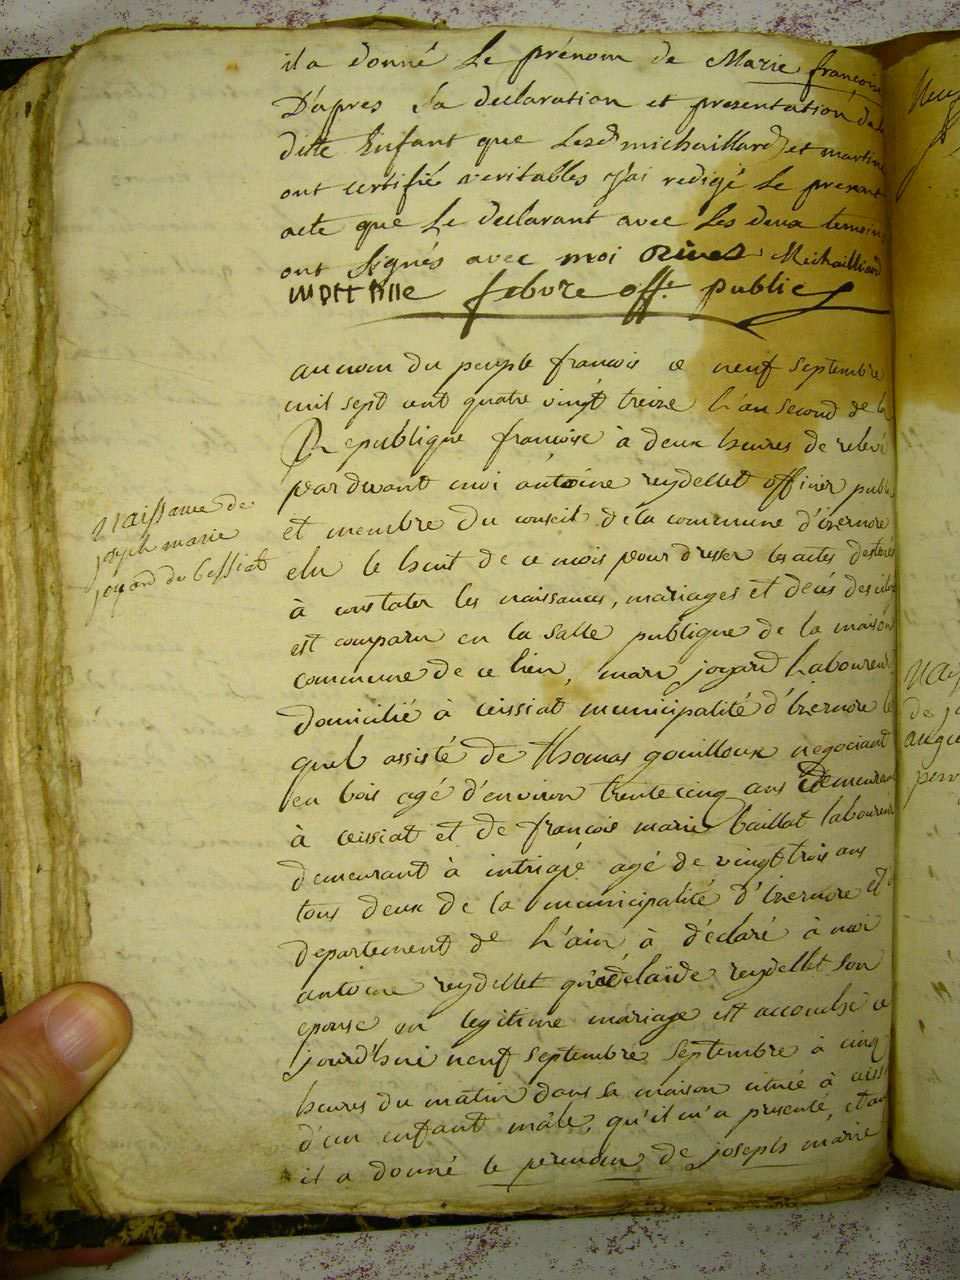 il a donné Le prénom de Marie françoise
D'apres Sa declaration et presentation de la
ditte Enfant que Lesd michaillard et martine
ont certifié veritables J'ai redigé Le present
acte que Le declarant avec Les deux temoins
ont Signés avec moi Michaillard
febvre off. public
au nom du peuple francois ce neuf septembre
mil sept cent quatre vingt treize L'an second de la
Republique francoise à deux heures de relevé
pardevant moi antoine reydellet officier public
et membre du conseil de la commune d'izernore
elu le huit de ce mois pour dresser les actes destinés
à constater les naissances, mariages et décés des
est comparu en la salle publique de la maison
commune de ce lieu, marc joyard Laboureur
domicilié à ceissiat municipalité d'izernore le
quel assisté de thomas gouilloux negociant
en bois agé d'environ trente cinq ans demeurant
à ceissiat et de francois marie baillat laboureur
demeurant à intriaje agé de vingt trois ans
tous deux de la municipalité d'izernore et
departement de L'ain à déclaré à moi
antoine reydellet qu'adelaïde reydellet son
epouse en legitime mariage est accouchée ce
jourd'hui neuf septembre septembre à cinq
heures du matin dans sa maison située à
d'un enfant mâle, qu'il m'a presenté, et au
il a donné le prenom de joseph marie
Naissance de
joseph marie
joyard de Cessiat